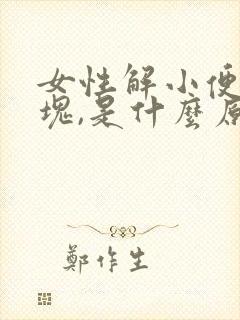 女性解小便
塊,是什麼原
鄭作生